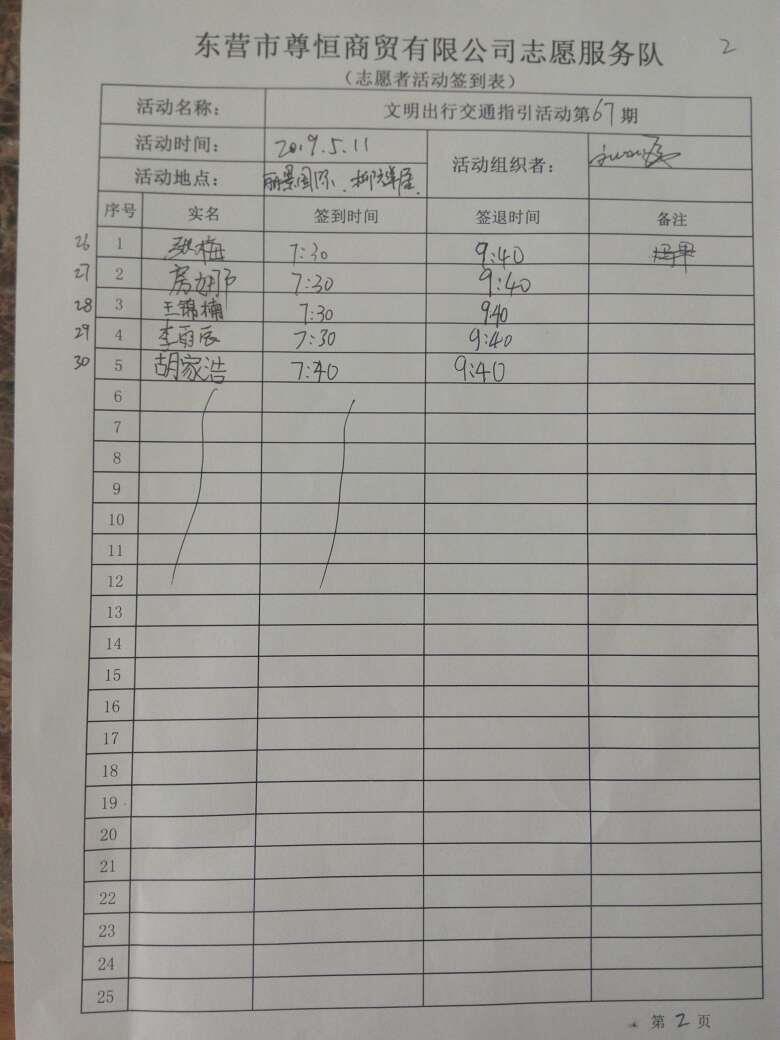 2
东营市尊恒商贸有限公司志愿服务队
（志愿者活动签到表）
活动名称： 文明出行交通指引活动第67期
活动时间： 2019.5.11 活动组织者：
活动地点： 丽景国际、
序号 实名 签到时间 签退时间 备注
26 1 张梅 7:30 9:40
27 2 7:30 9:40
28 3 王锦楠 7:30 9:40
29 4 李雨辰 7:30 9:40
30 5 胡家浩 7:40 9:40
6
7
8
9
10
11
12
13
14
15
16
17
18
19
20
21
22
23
24
25
第 2 页